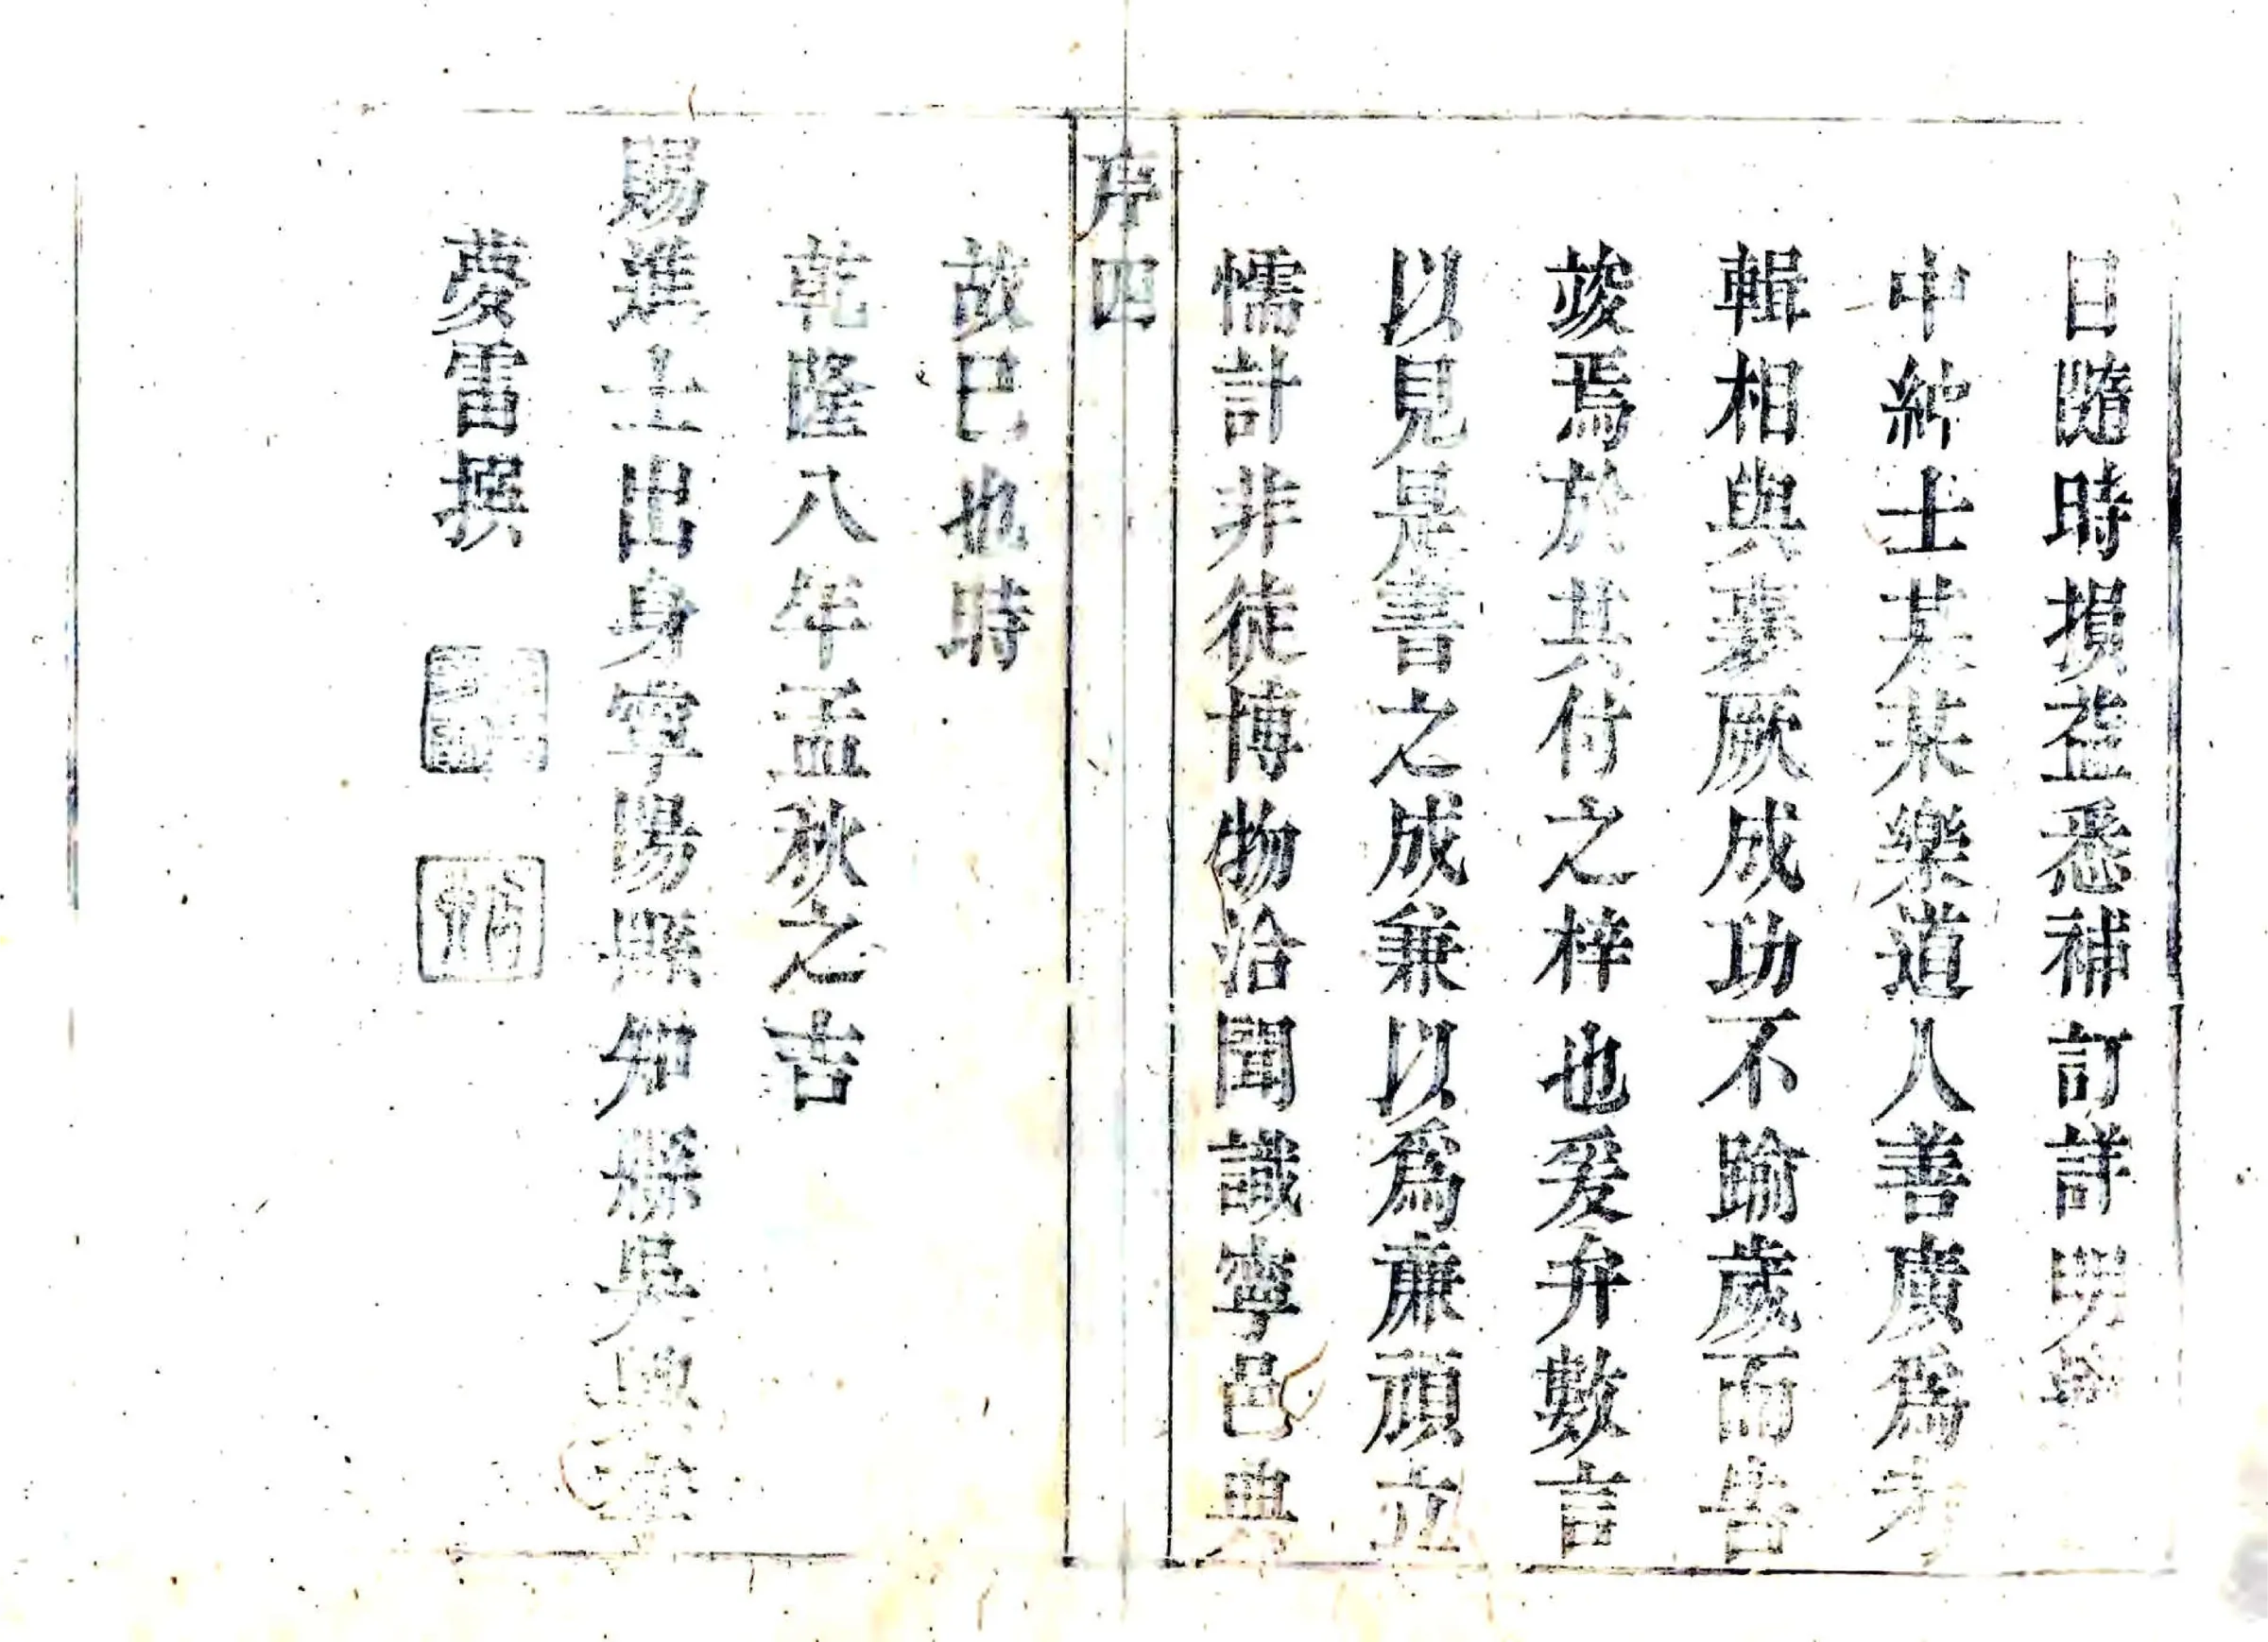 日隨時損益悉補訂詳明
中紳士某某樂道人善廣爲考
輯相與襄厥成功不踰歲而告
竣焉於其付之梓也爰弁數言
以見是書之成兼以爲廉頑立
懦計非徒博物洽聞識寧邑典
序四
故已也時
乾隆八年孟秋之吉
賜進士出身寧陽縣知縣吳興
夢雷撰